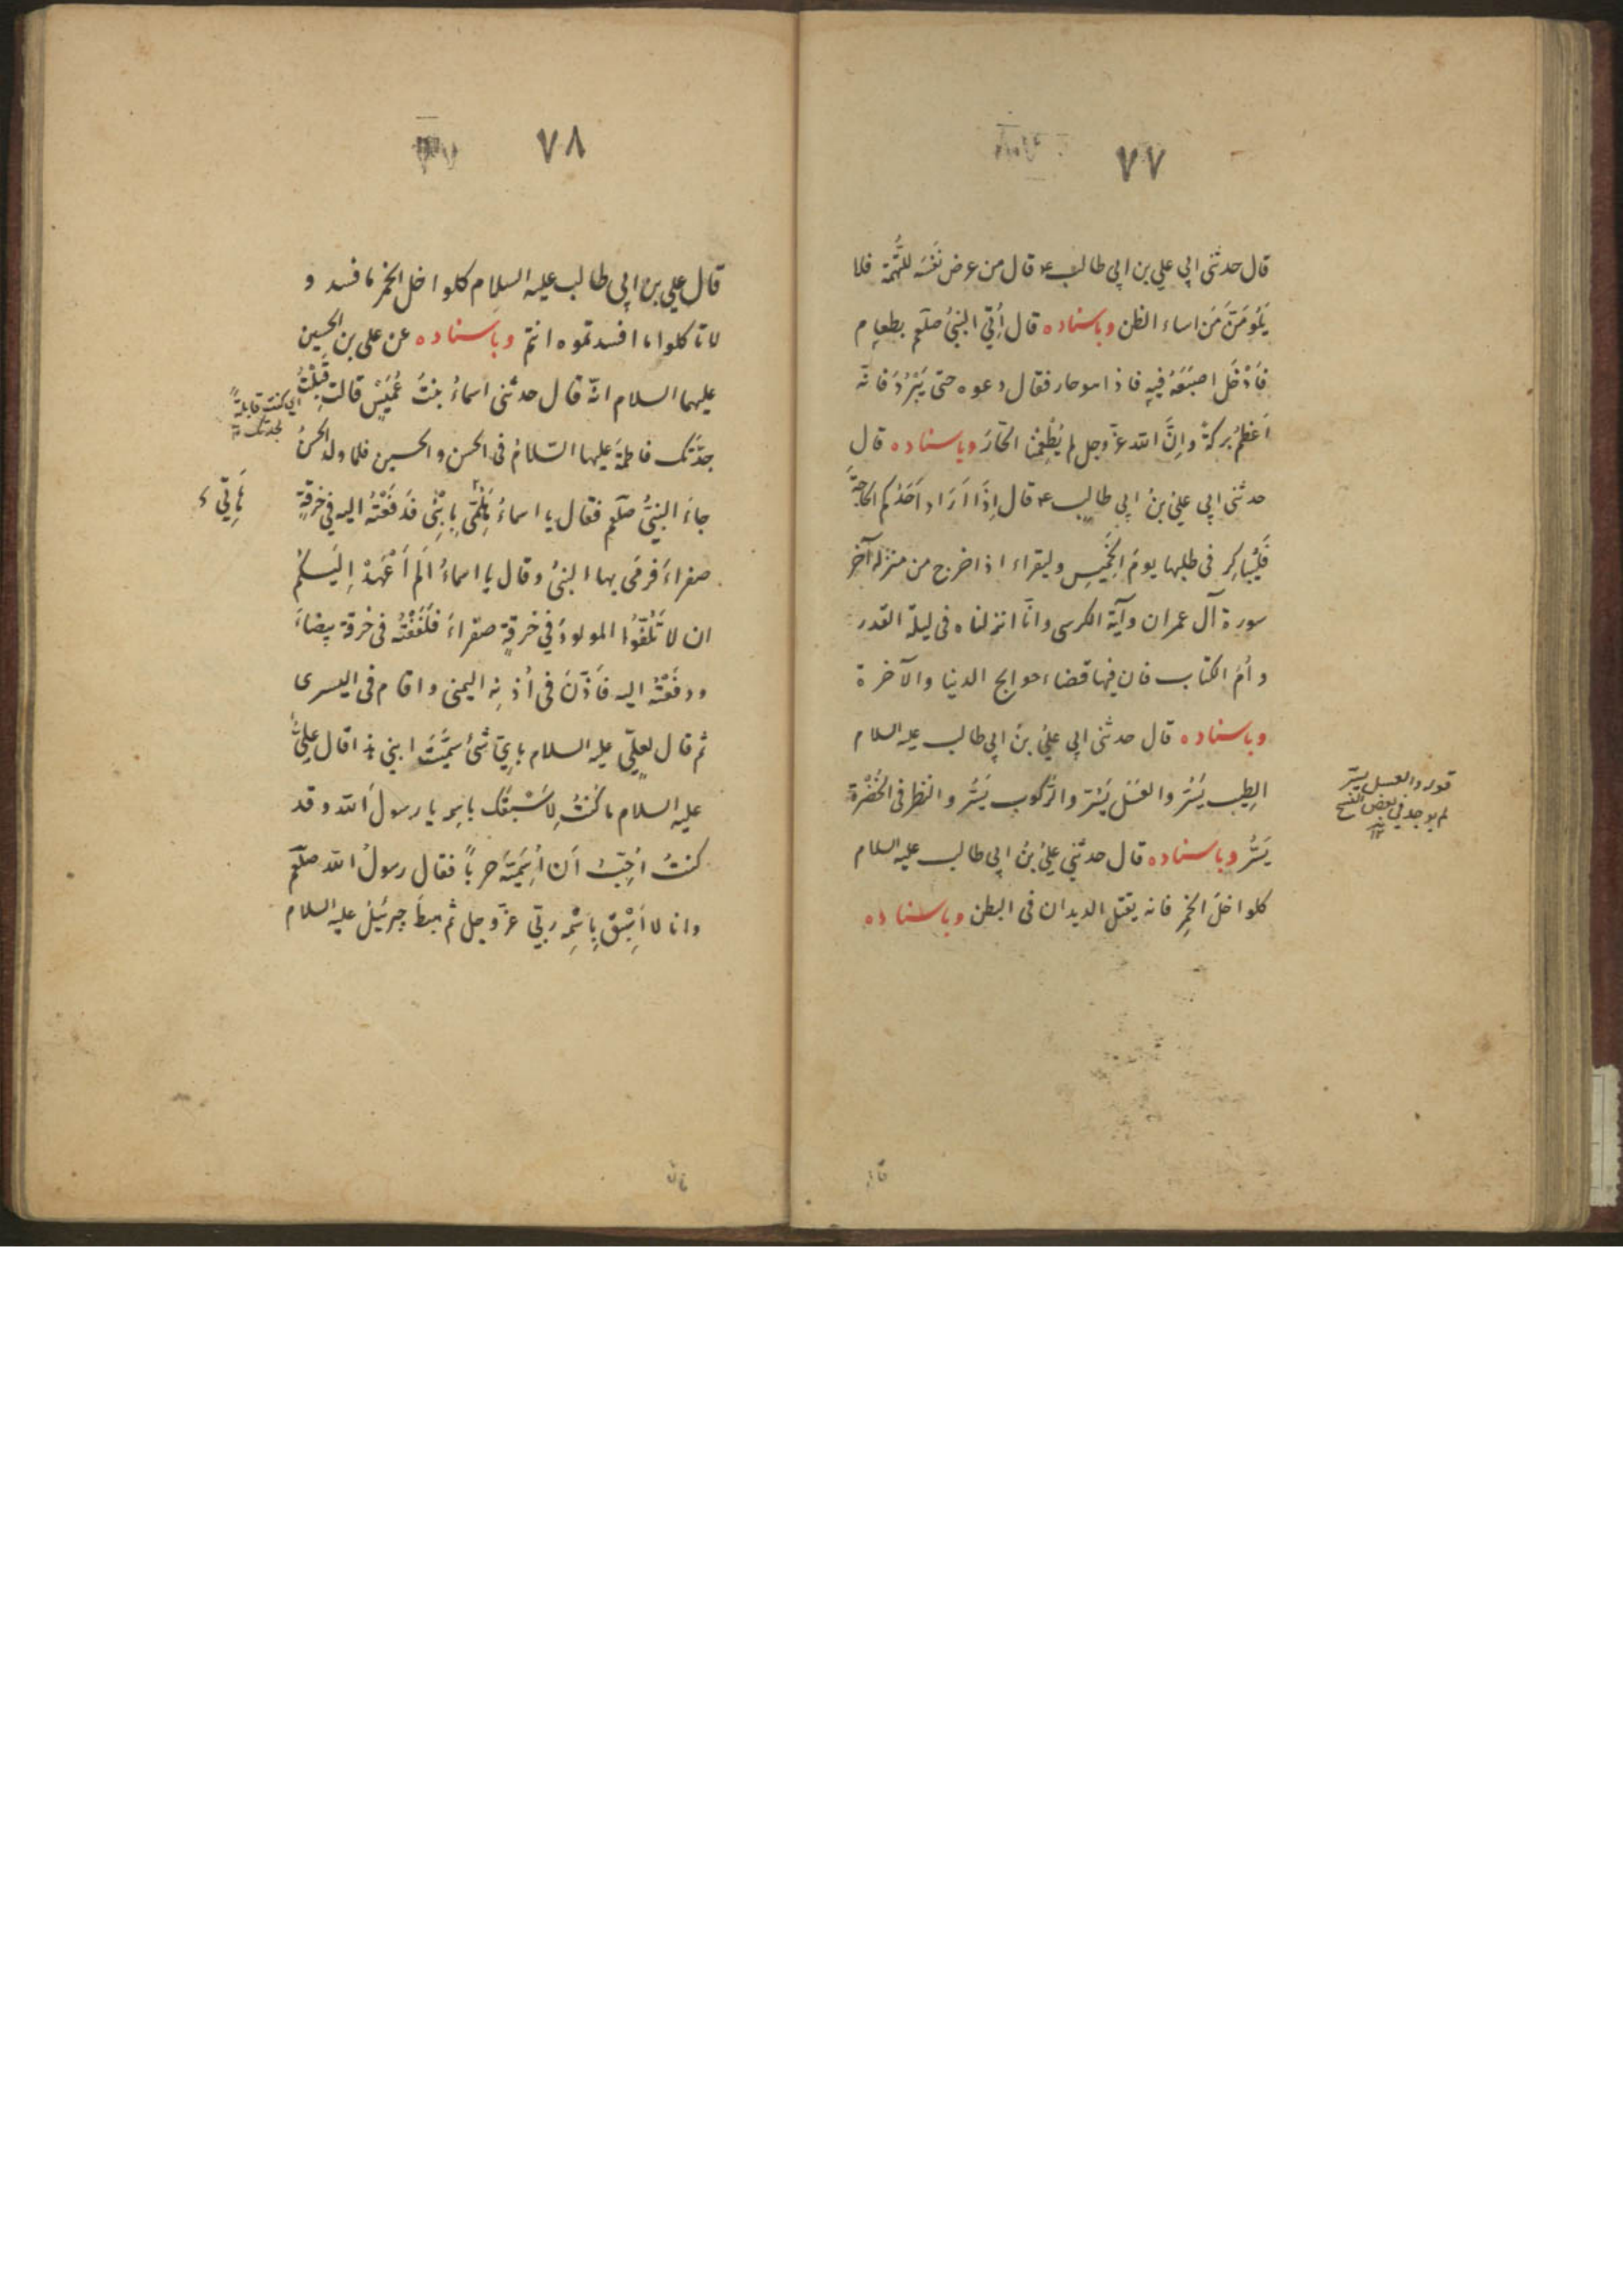 ٧٧
قال حدثنى ابى على بن ابى طالب ع قال من عرض نَفْسَه للتُّهمة فلا
يَلُومَنَّ مَن اساء الظن وباسناده قال أُتِىَ النبىُّ صلعم بطعام
فَاَدْخَلَ اصبَعَهُ فيهِ فاذا هو حار فقال دعوه حتى يَبْرُدَ فانّه
اَعْظمُ بركةً وانَّ الله عزّ وجل لم يُطْعِمْنا الحَّارَ وباسناده قال
حدثنى ابى علىُّ بنُ ابى طالبٍ ع قال اِذَا اَرَادَ اَحَدُكم الحَاجَةَ
فَلْيُباكِر فى طلبها يومَ الخَمِيسِ وليقراء اذا خرج من منزله آخر
سورة آل عمران وآية الكرسى وانّا انزلناه فى ليلة القدر
وأُمّ الكتاب فان فيها قضاء حوايج الدنيا والآخرة
وباسناده قال حدثنى ابى علىُّ بنُ ابى طالب عليه السلام
الطِيب يَسُرّ والعَسَل يَسُرّ والرُّكوب يَسُرُّ والنظر فى الخُضْرَة
يَسُرُّ وباسناده قال حدثنى علىُّ بنُ ابى طالب عليه السلام
كلوا خلَّ الخَمِر فانه يقتل الديدان فى البطن وباسناده
قوله والعسل يسرّ
لم يوجد فى بعض النسخ
١٢
٧٨
قال على بن ابى طالب عليه السلام كلوا خل الخمر ما فسد و
لا تاكلوا ما افسدتموه انتم وباسناده عن على بن الحسين
عليهما السلام انّه قال حدثنى اسماءُ بنتُ عُمَيْسٍ قالت قَبِلْتُ
جدّتَك فاطمةَ عليها السّلامُ فى الحسن والحسين فلما ولد الحسنُ
جاءَ النبىُّ صلعم فقال يا اسماءُ هَلُمِّى بِابْنِى فَدَفَعْتُهُ اليه فى خرقةٍ
صفراءَ فرمَى بها النبىُّ وقال يا اسماءُ اَلَم اَعْهَدْ اِلَيكُمْ
ان لا تَلُفّوا المولودَ فى خرقةٍ صفراءَ فلَفَفْتُه فى خرقة بيضاءَ
ودفَعْتُه اليه فَاَذّنَ فى أُذنِهِ اليمنى واقام فى اليسرى
ثم قال لعلىٍّ عليه السلام باىّ شىءٍ سمَّيْتَ ابنى هذا قال علىٌّ
عليه السلام ما كُنتُ لِاَسْبَقَك باسمه يا رسولَ الله وقد
كنتُ اُحِبُّ اَن اُسَمِّيَهُ حرباً فقال رسولُ الله صلعم
وانا لا اَسْبِقُ بِاسْمِه ربّى عزّ وجل ثم هبطَ جبرئيلُ عليه السلام
اى كنت قابلةً
لجدتك
هَاتِى